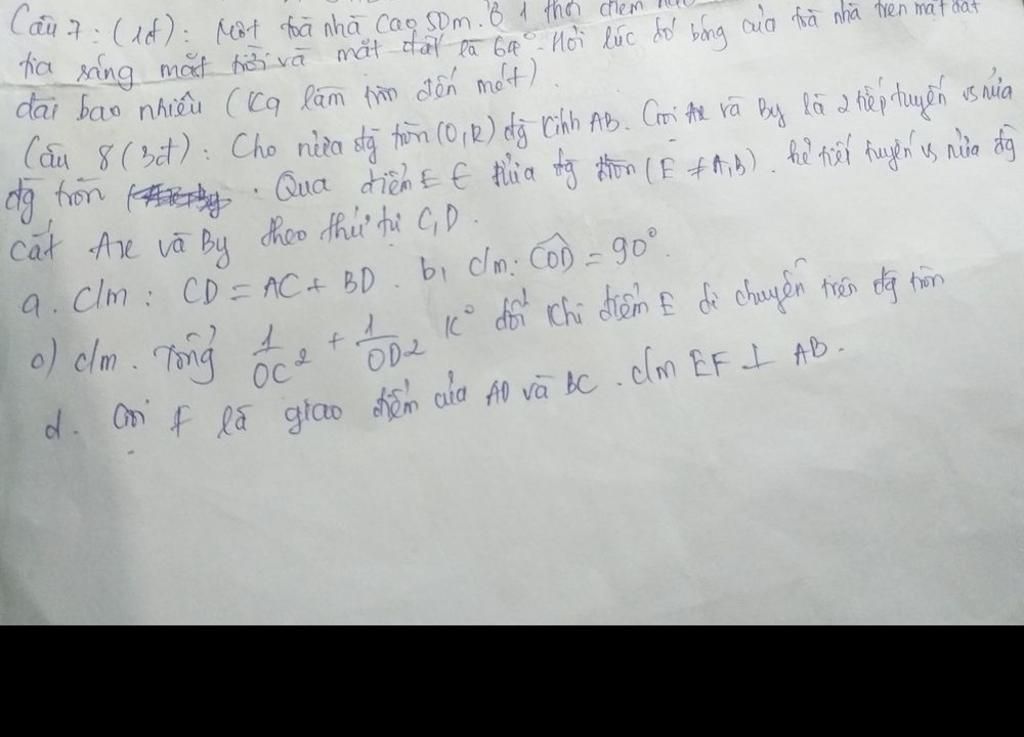 Câu 7: (1đ): Một toà nhà cao 50m. Ở 1 thời điểm
tia sáng mặt trời và mặt đất là 64°. Hỏi lúc đó bóng của toà nhà trên mặt đất
dài bao nhiêu (Kq làm tròn đến mét).
Câu 8 (3đ): Cho nửa đg tròn (O,R) đg kính AB. Gọi Ax và By là 2 tiếp tuyến vs nửa
đg tròn. Qua điểm E ∈ nửa đg tròn (E ≠ A,B). kẻ tiếp tuyến vs nửa đg
cắt Ax và By theo thứ tự C,D.
a. C/m: CD = AC + BD. b, c/m: \widehat{COD} = 90°.
c) c/m. Tổng 1/OC² + 1/OD² K° đổi khi điểm E di chuyển trên đg tròn
d. Gọi F là giao điểm của AD và BC. c/m EF ⊥ AB.